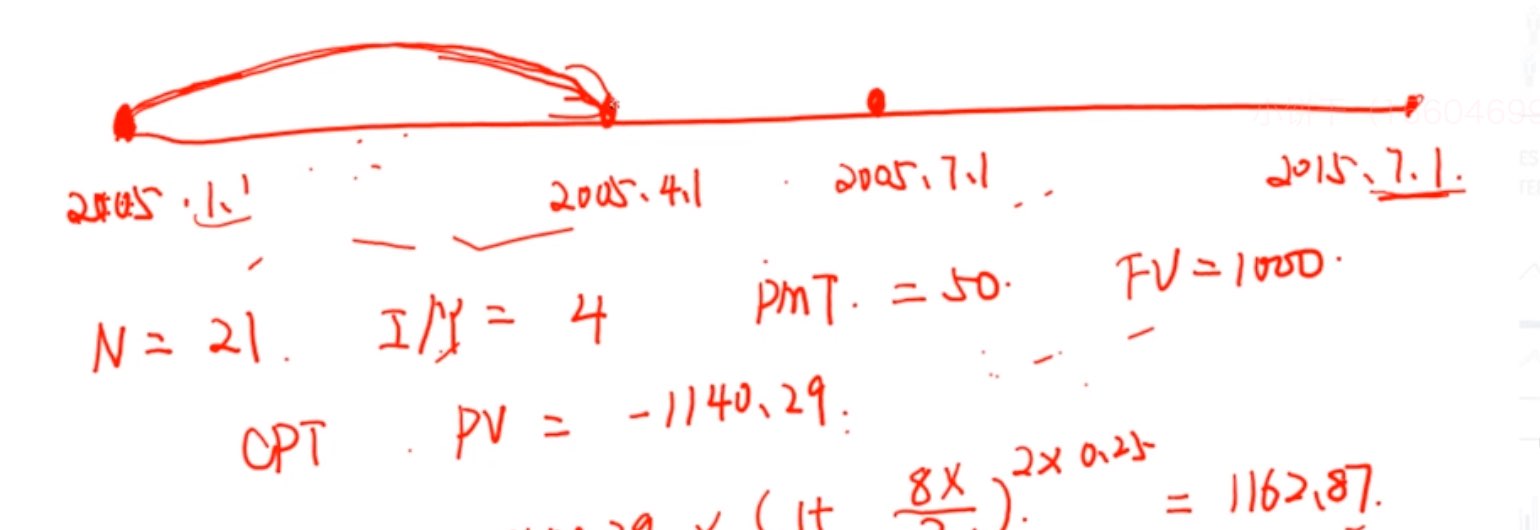 2005.1.1 2005.4.1 2005.7.1 2015.7.1.
N = 21. I/Y = 4 PMT. = 50. FV = 1000.
CPT PV = -1140.29.
× (1+ 8% )^2×0.25 = 1162.87.